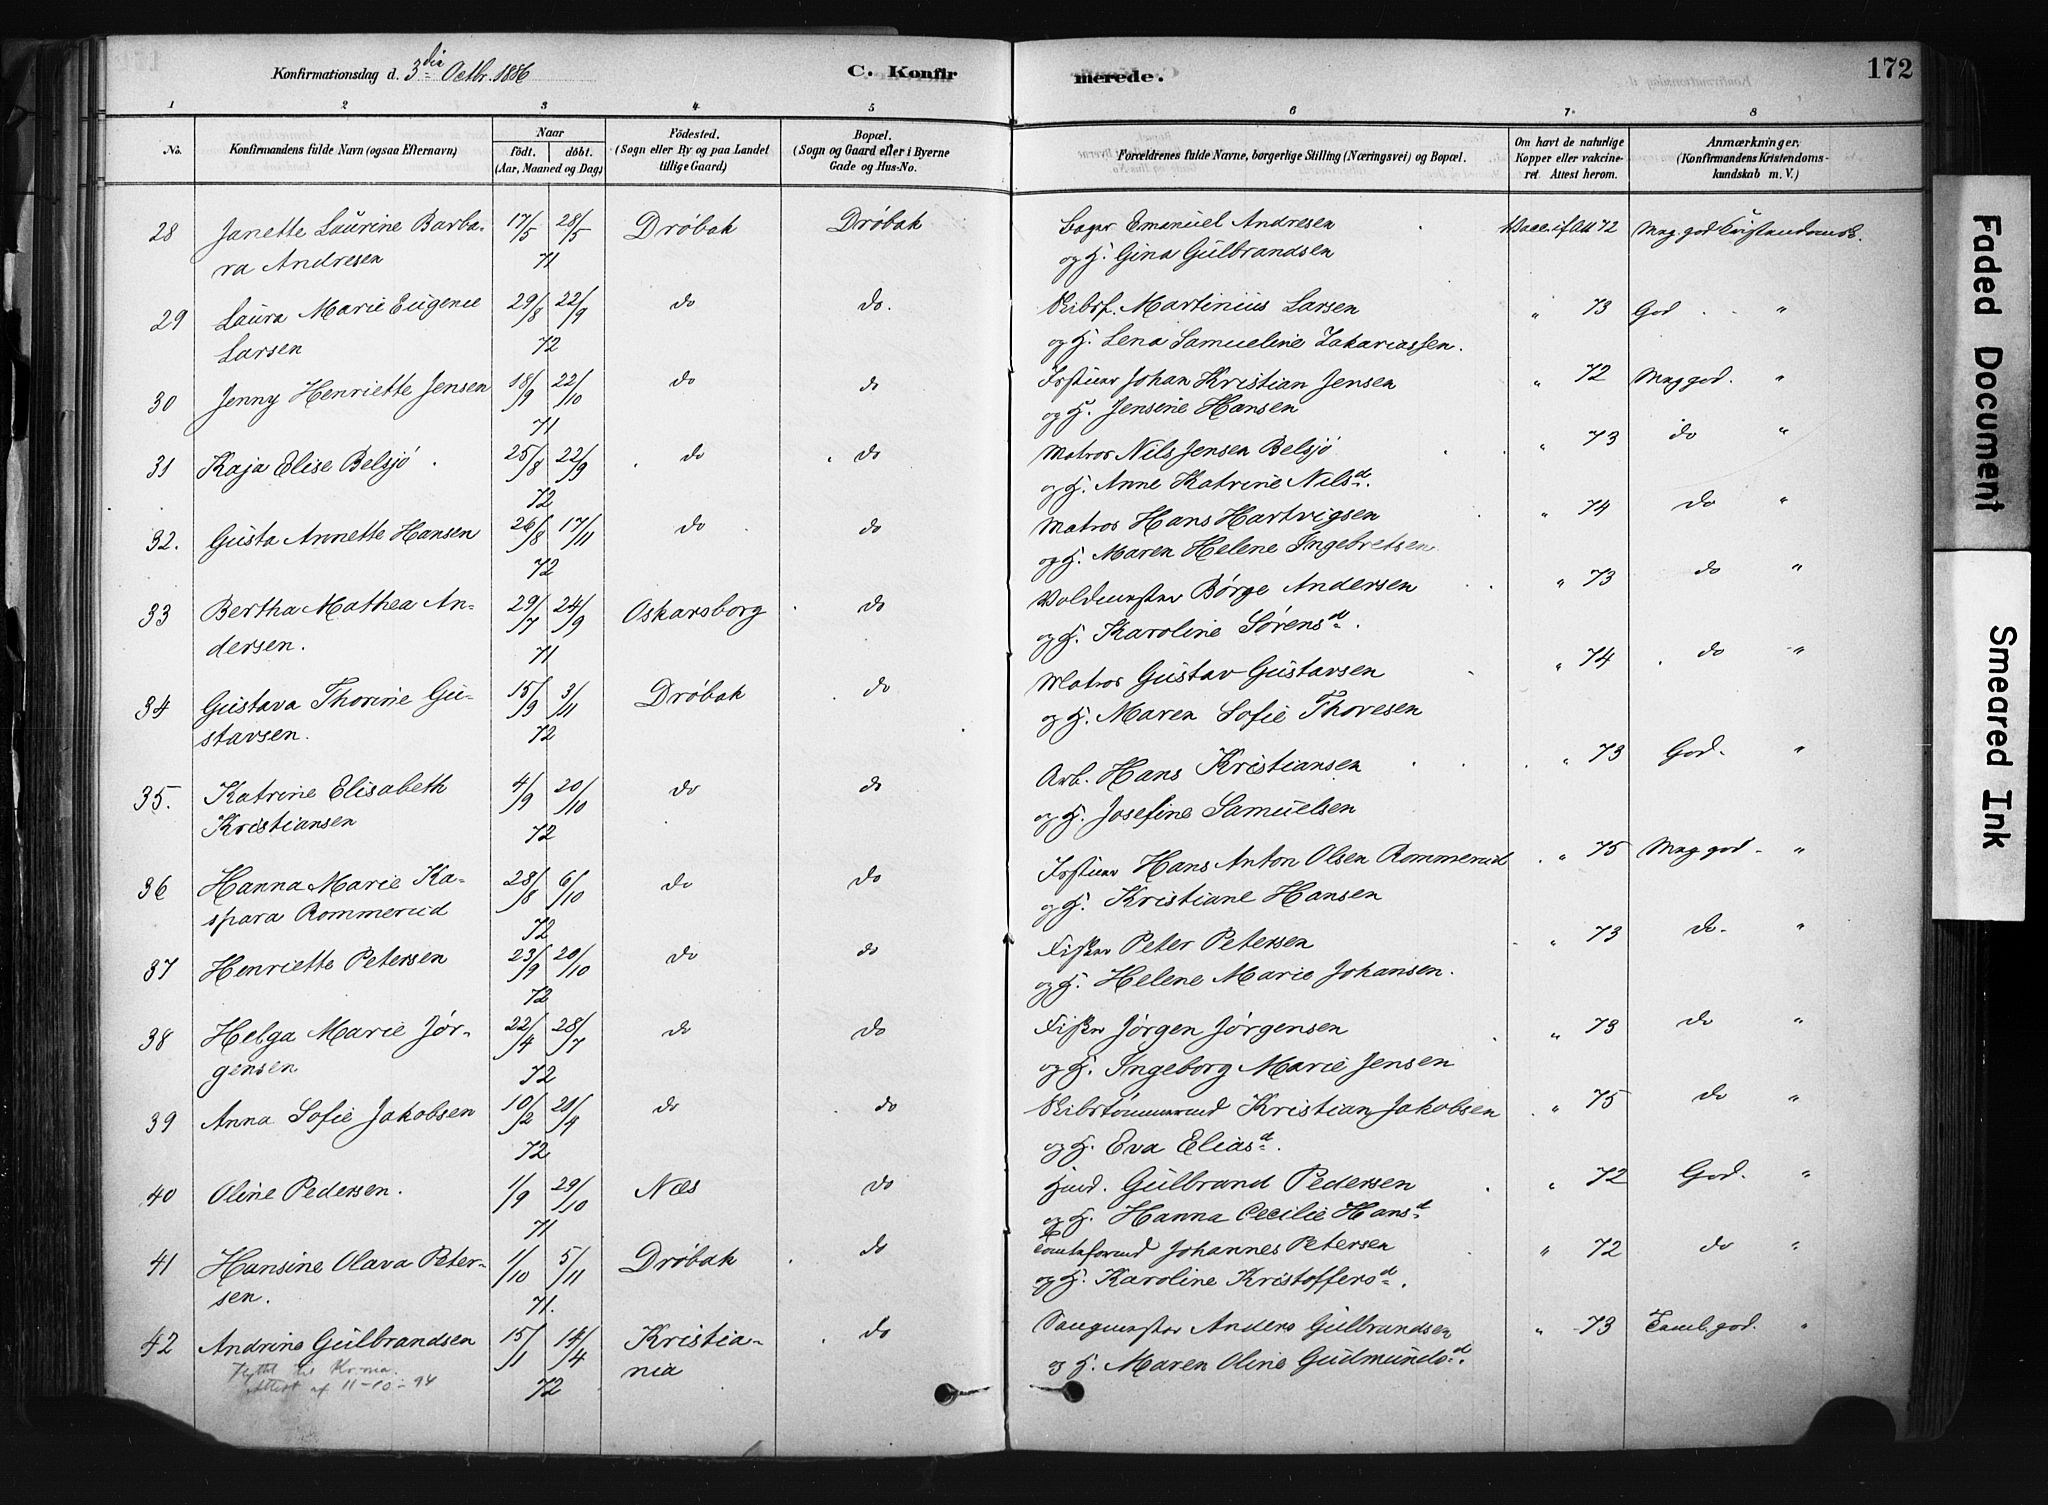 Konfirmationsdag d. 3die Octbr. 1886
C. Konfirmerede.
172
1 2 3 4 5 6 7 8
No.
Konfirmandens fulde Navn (ogsaa Efternavn)
Naar
født. døbt.
(Aar, Maaned og Dag)
Födested.
(Sogn eller By og paa Landet
tillige Gaard)
Bopæl.
(Sogn og Gaard eller i Byerne
Gade og Hus-No.
Forældrenes fulde Navne, borgerlige Stilling (Næringsvei) og Bopæl.
Om havt de naturlige
Kopper eller vakcine-
ret Attest herom.
Anmærkninger.
(Konfirmandens Kristendoms-
kundskab m. V.)
28 Janette Laurine Barba- 17/5 28/5 Drøbak Drøbak Bager Emanuel Andresen 72 Mag. god Kristendomsk.
ra Andresen 71 og H. Gina Gulbrandsen
29 Laura Marie Eugenie 29/8 22/9 do do. Skibsf. Martinius Larsen " 73 God "
Larsen 72 og H. Lena Samueline Zakariassen.
30 Jenny Henriette Jensen 18/9 22/10 do do Johan Kristian Jensen " 72 Mag god. "
71 og H. Jensine Hansen
31 Kaja Elise Belsjø 25/8 22/9 do do Matros Nils Jensen Belsjø " 73 do "
72 og H. Anne Katrine Nilsd.
32. Gusta Annette Hansen 26/8 17/11 do do Matros Hans Hartvigsen " 74 do "
72 og H. Maren Helene Ingebretsen
33 Bertha Mathea An- 29/7 24/9 Oskarsborg do Voldmester Børge Andersen " 73 do "
dersen. 71 og H. Karoline Sørensd.
34 Gustava Thorine Gu- 15/9 3/11 Drøbak do Matros Gustav Gustavsen " 74 do "
stavsen. 72 og H. Maren Sofie Thoresen
35. Katrine Elisabeth 4/9 20/10 do do Arb. Hans Kristiansen " 73 God. "
Kristiansen 72 og H. Josefine Samuelsen
36 Hanna Marie Ka- 28/8 6/10 do do Hans Anton Olsen Rommerud " 75 Mag god. "
spara Rommerud 72 og H. Kristiane Hansen
37 Henriette Petersen 23/9 20/10 do do Fisker Peter Petersen " 73 do. "
72 og H. Helene Marie Johansen.
38 Helga Marie Jør- 22/4 28/7 do do Fisker Jørgen Jørgensen " 73 do "
gensen 72 og H. Ingeborg Marie Jensen
39 Anna Sofie Jakobsen 10/2 21/4 do do Skibstømmermd Kristian Jakobsen " 75 do "
72 og H. Eva Eliasd.
40 Oline Pedersen. 1/9 29/10 Næs do Husd. Gulbrand Pedersen " 72 God. "
71 og H. Hanna Cecilie Hansd.
41 Hansine Olava Peter- 1/10 5/11 Drøbak do Johannes Petersen " 72 do "
sen. 71. og H. Karoline Kristoffersd.
42 Andrine Gulbrandsen 15/1 14/4 Kristia- do Anders Gulbrandsen " 73 Taml. god. "
Flyttet til Kr.nia. nia og H. Maren Oline Gudmundsd.
Attest af 11-10-94 72
Faded Document
Smeared Ink